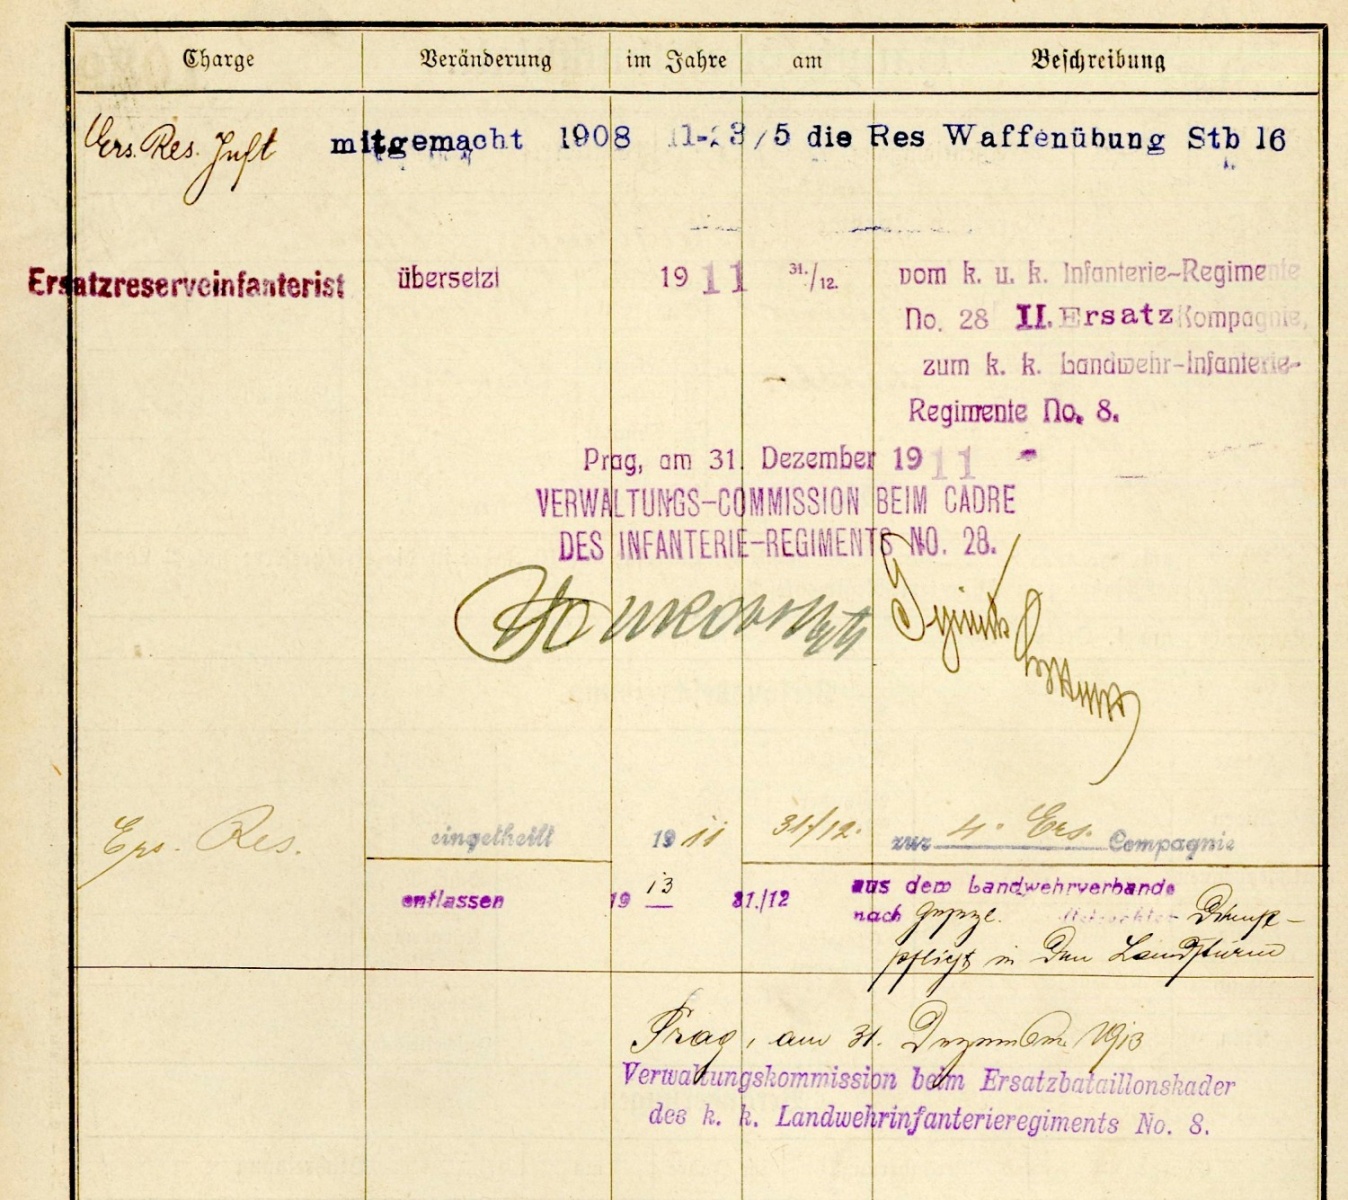 Charge Veränderung im Jahre am Beschreibung
Ers. Res. Inft mitgemacht 1908 11-23/5 die Res Waffenübung Stb 16
Ersatzreserveinfanterist übersetzt 1911 31./12. vom k. u. k. Infanterie-Regimente
No. 28 II. Ersatz Kompagnie,
zum k. k. Landwehr-Infanterie-
Regimente No. 8.
Prag, am 31. Dezember 1911
VERWALTUNGS-COMMISSION BEIM CADRE
DES INFANTERIE-REGIMENTS NO. 28.
Ers. Res. eingetheilt 1911 31/12. zur 4. Ers. Compagnie
entlassen 1913 31./12 aus dem Landwehrverbande
nach
pflicht in den Landsturm
Prag, am 31. Dezember 1913
Verwaltungskommission beim Ersatzbataillonskader
des k. k. Landwehrinfanterieregiments No. 8.